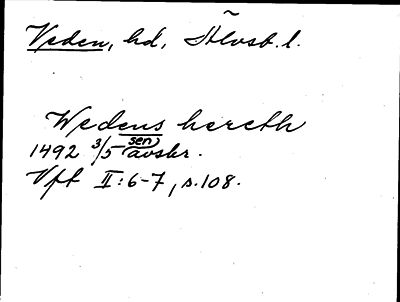 Veden, hd, Älvsb. l.
Wedens hereth
1492 3/5 (sen) avskr.
Vft II: 6-7, s. 108.